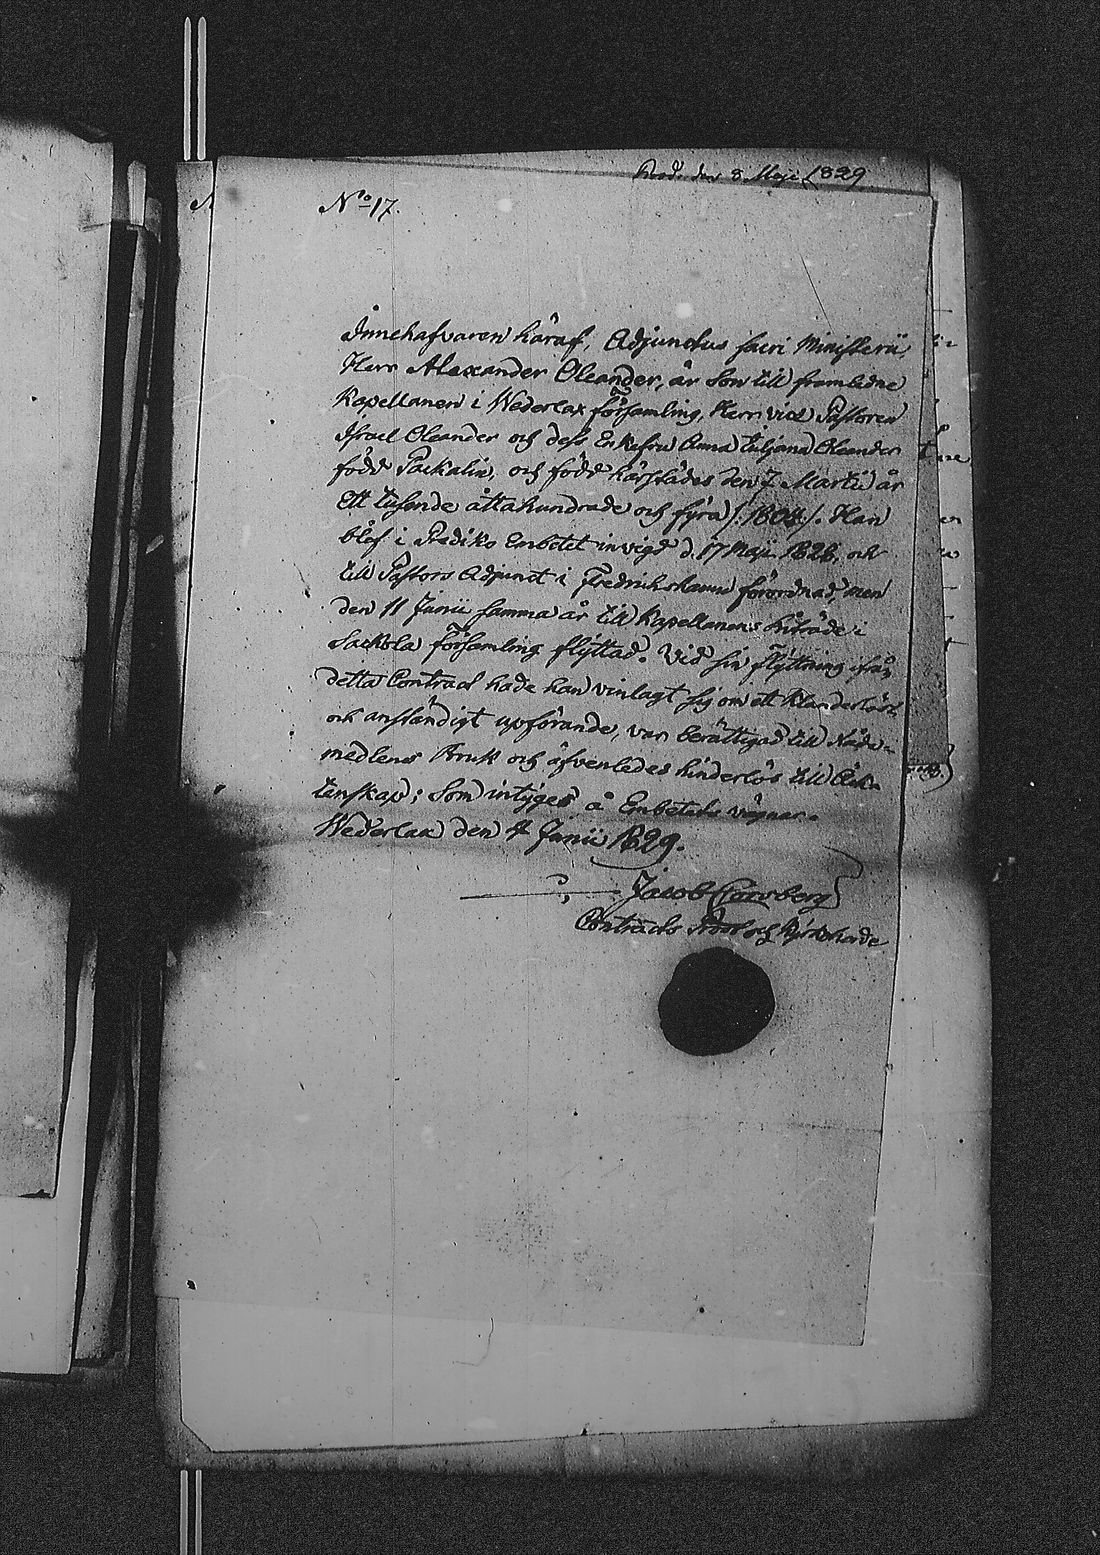 Prod. den 8 Maji 1829
No 17.
Innehafvaren häraf, Adjunctus sacri Ministerii,
Herr Alexander Oleander, är Son till framledne
Kapellanen i Wederlax församling, Herr vice Pastoren
Israel Oleander och dess Enkefru Anna Juljana Oleander
född Packalin, och född härstädes den 7 Martii år
Ett tusende åttahundrade och fyra /: 1804 :/. Han
blef i Prediko Embetet invigd d. 17 Maji 1828, och
till Pastors Adjunct i Fredrikshamn förordnad, men
den 11 Junii samma år till Kapellanens biträde i
Sackola församling flyttad. Vid sin flyttning ifrån
detta Contract hade han vinlagt sig om ett klanderlöst
och anständigt upförande, var berättigad till Nåde-
medlens bruk och äfvenledes hinderlös till Äkta
tenskap; Som intygas å Embetets vägnar.
Wederlax den 4 Junii 1829.
Jacob
Contracts Prost och Kyrkoherde